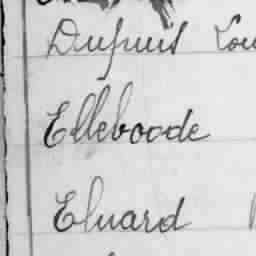 Dupuis Lou
Elleboode
Eluard